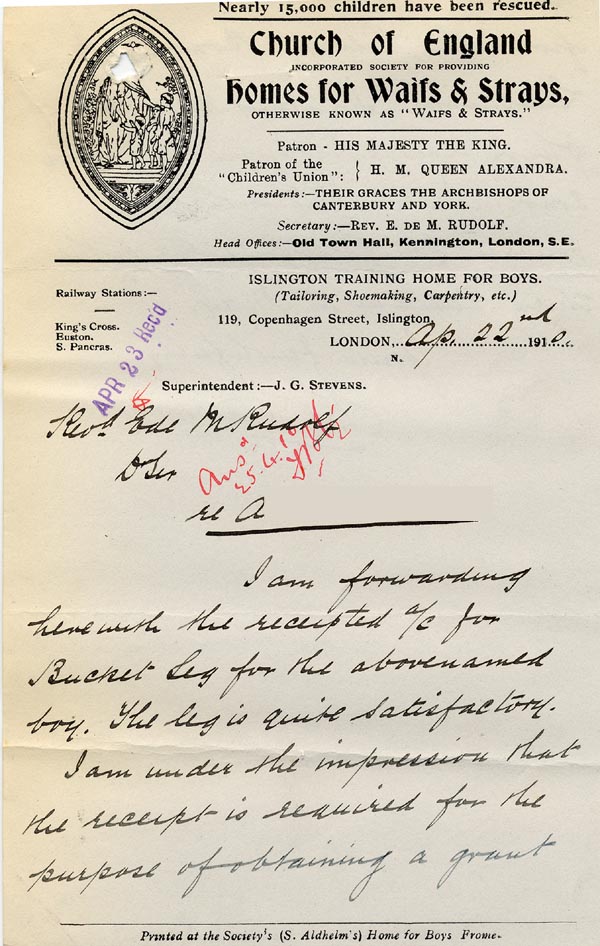 Nearly 15,000 children have been rescued.
Church of England
INCORPORATED SOCIETY FOR PROVIDING
Homes for Waifs & Strays,
OTHERWISE KNOWN AS "WAIFS & STRAYS."
Patron - HIS MAJESTY THE KING.
Patron of the "Children's Union": { H. M. QUEEN ALEXANDRA.
Presidents:—THEIR GRACES THE ARCHBISHOPS OF
CANTERBURY AND YORK.
Secretary:—REV. E. DE M. RUDOLF.
Head Offices:—Old Town Hall, Kennington, London, S.E.
ISLINGTON TRAINING HOME FOR BOYS.
(Tailoring, Shoemaking, Carpentry, etc.)
Railway Stations:—
King's Cross.
Euston.
S. Pancras.
119, Copenhagen Street, Islington,
LONDON, Ap. 22nd 1910.
N.
APR 23 Rec'd
Superintendent:—J. G. STEVENS.
Revd E de M Rudolf
D Sir
Ansd
25.4.10
re A
I am forwarding
herewith the receipted a/c for
Bucket Leg for the abovenamed
boy. The leg is quite satisfactory.
I am under the impression that
the receipt is required for the
purpose of obtaining a grant
Printed at the Society's (S. Aldhelm's) Home for Boys Frome.